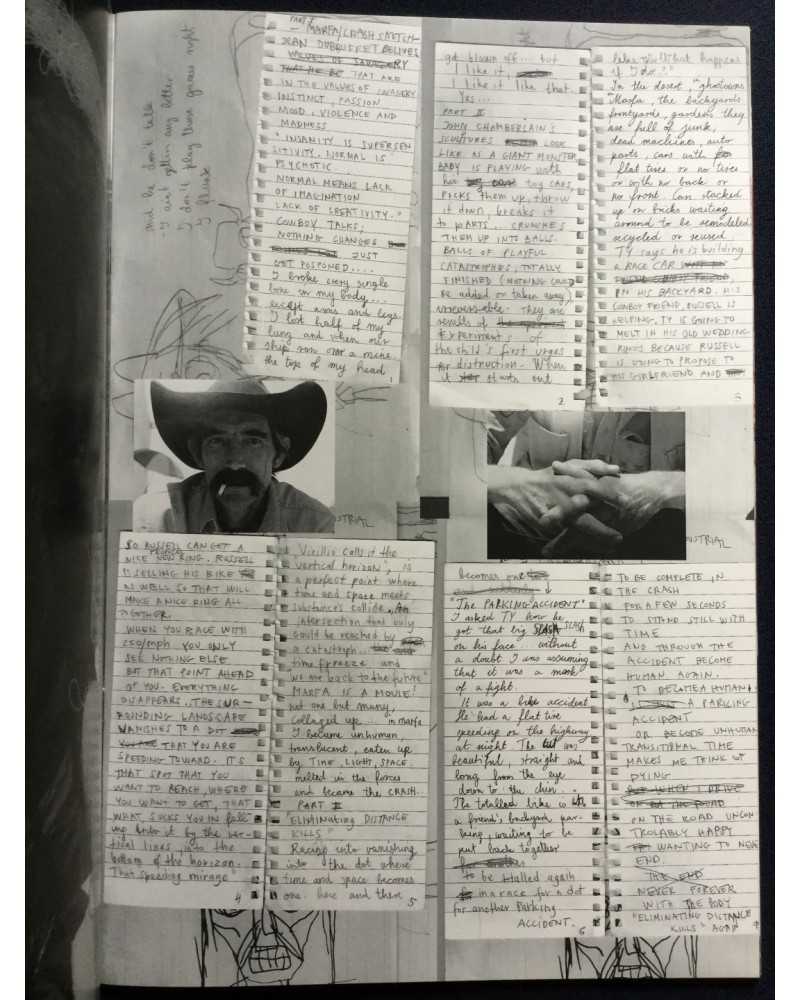 and he don't talk
- I ain't gettin any better
I don't play those games right
I think
PART I
- MARFA/CRASH SKETCH
JEAN DUBBUFFET BELIVES
VALUES OF SAVAGERY
THAT HE BE THAT ARE
IN THE VALUES OF SAVAGERY
INSTINCT, PASSION
MOOD, VIOLENCE AND
MADNESS
"INSANITY IS SUPERSEN
SITIVITY. NORMAL IS
PSYCHOTIC
NORMAL MEANS LACK
OF IMAGINATION
LACK OF CREATIVITY."
COWBOY TALKS;
NOTHING CHANGES
JUST
GET POSTPONED....
I broke every single
bone in my body...
except arms and legs.
I lost half of my
lung and when our
ship ran over a mine
the top of my head
1
got blown off... but
I like it,
I like it like that.
Yes...
PART II
JOHN CHAMBERLAIN'S
SCULTURES LOOK
LIKE AS A GIANT MONSTER
BABY IS PLAYING WITH
her toy CARS,
PICKS THEM UP, throw
it down, breaks it
to parts.. CRUNCHES
THEM UP INTO BALLS.
BALLS OF PLAYFUL
CATASTROPHES, TOTALLY
FINISHED (NOTHING COULD
BE added or taken away),
They are
results of
Experiments of
the child's first urges
for distruction. When
it starts out
2
What happens
if I do?"
In the desert, "ghostowns
Marfa, the backyards
frontyards, gardens they
are full of junk,
dead machines, auto
parts, cars with
flat tires or no tires
or with no back or
no front. Cars stacked
up on bricks waiting
around to be remodeled
recycled or reused.
TY says he is building
a RACE CAR
IN HIS BACKYARD. HIS
COWBOY FRIEND, RUSSELL IS
HELPING. TY IS GOING TO
MELT IN HIS OLD WEDDING
RINGS BECAUSE RUSSELL
IS GOING TO PROPOSE TO
HIS GIRLFRIEND AND
3
STRIAL
NSTRIAL
SO RUSSELL CAN GET A
NICE NEW RING. RUSSELL
IS SELLING HIS BIKE
AS WELL SO THAT WILL
MAKE A NICE RING ALL
TOGETHER.
WHEN YOU RACE WITH
250/mph YOU ONLY
SEE NOTHING ELSE
BUT THAT POINT AHEAD
OF YOU. EVERYTHING
DISAPPEARS. THE SUR-
ROUNDING LANDSCAPE
VANISHES TO A DOT
THAT YOU ARE
SPEEDING TOWARD. IT'S
THAT SPOT THAT YOU
WANT TO REACH, WHERE
YOU WANT TO GET, THAT
WHAT SUCKS YOU IN fall
ing into it by the ver-
tical lines, into the
bottom of the horizon.
That speeding mirage"
4
"Virillio calls it the
vertical horizon", is
a perfect point where
time and space meets
substances collide. An
intersection that only
could be reached by
a catastroph...
time freeze and
we are back to the future"
MARFA IS A MOVIE!
not one but many,
Collaged up... in marfa
I became unhuman,
translucent, eaten up
by TIME, LIGHT, SPACE.
melted in the forces
and became the CRASH.
PART III
"ELIMINATING DISTANCE
KILLS"
Racing into vanishing
into the dot where
time and space becomes
one. here and there
5
becomes one
"The PARKING ACCIDENT"
I asked TY how he
got that big SLASH
on his face.. without
a doubt I was assuming
that it was a mark
of a fight.
It was a bike accident
He had a flat tire
speeding on the highway
at night. The cut was
beautiful, straight and
long from the eye
down to the chin...
The totalled bike is at
a friend's backyard par-
king, waiting to be
put back together
to be totalled again
in a race for a dot
for another PARKING
ACCIDENT.
6
TO BE COMPLETE IN
THE CRASH
FOR A FEW SECONDS
TO STAND STILL WITH
TIME
AND THROUGH THE
ACCIDENT BECOME
HUMAN AGAIN.
TO BECOME A HUMAN
A PARKING
ACCIDENT
OR BECOME UNHUMAN
TRANSITIONAL TIME
MAKES ME THINK OF
DYING
BUT WHEN I DRIVE
ON THE ROAD
ON THE ROAD UNCON
TROLABLY HAPPY
WANTING TO NEVER
END.
THE END
NEVER FOREVER
WITH THE BODY
"ELIMINATING DISTANCE
KILLS" AGAIN